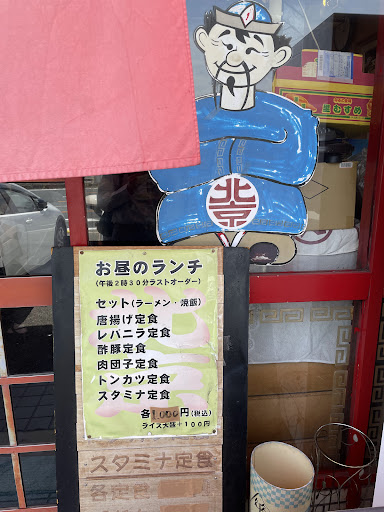 北京
お昼のランチ
(午後2時30分ラストオーダー)
セット(ラーメン・焼飯)
唐揚げ定食
レバニラ定食
酢豚定食
肉団子定食
トンカツ定食
スタミナ定食
各1000円(税込)
ライス大盛+100円
スタミナ定食